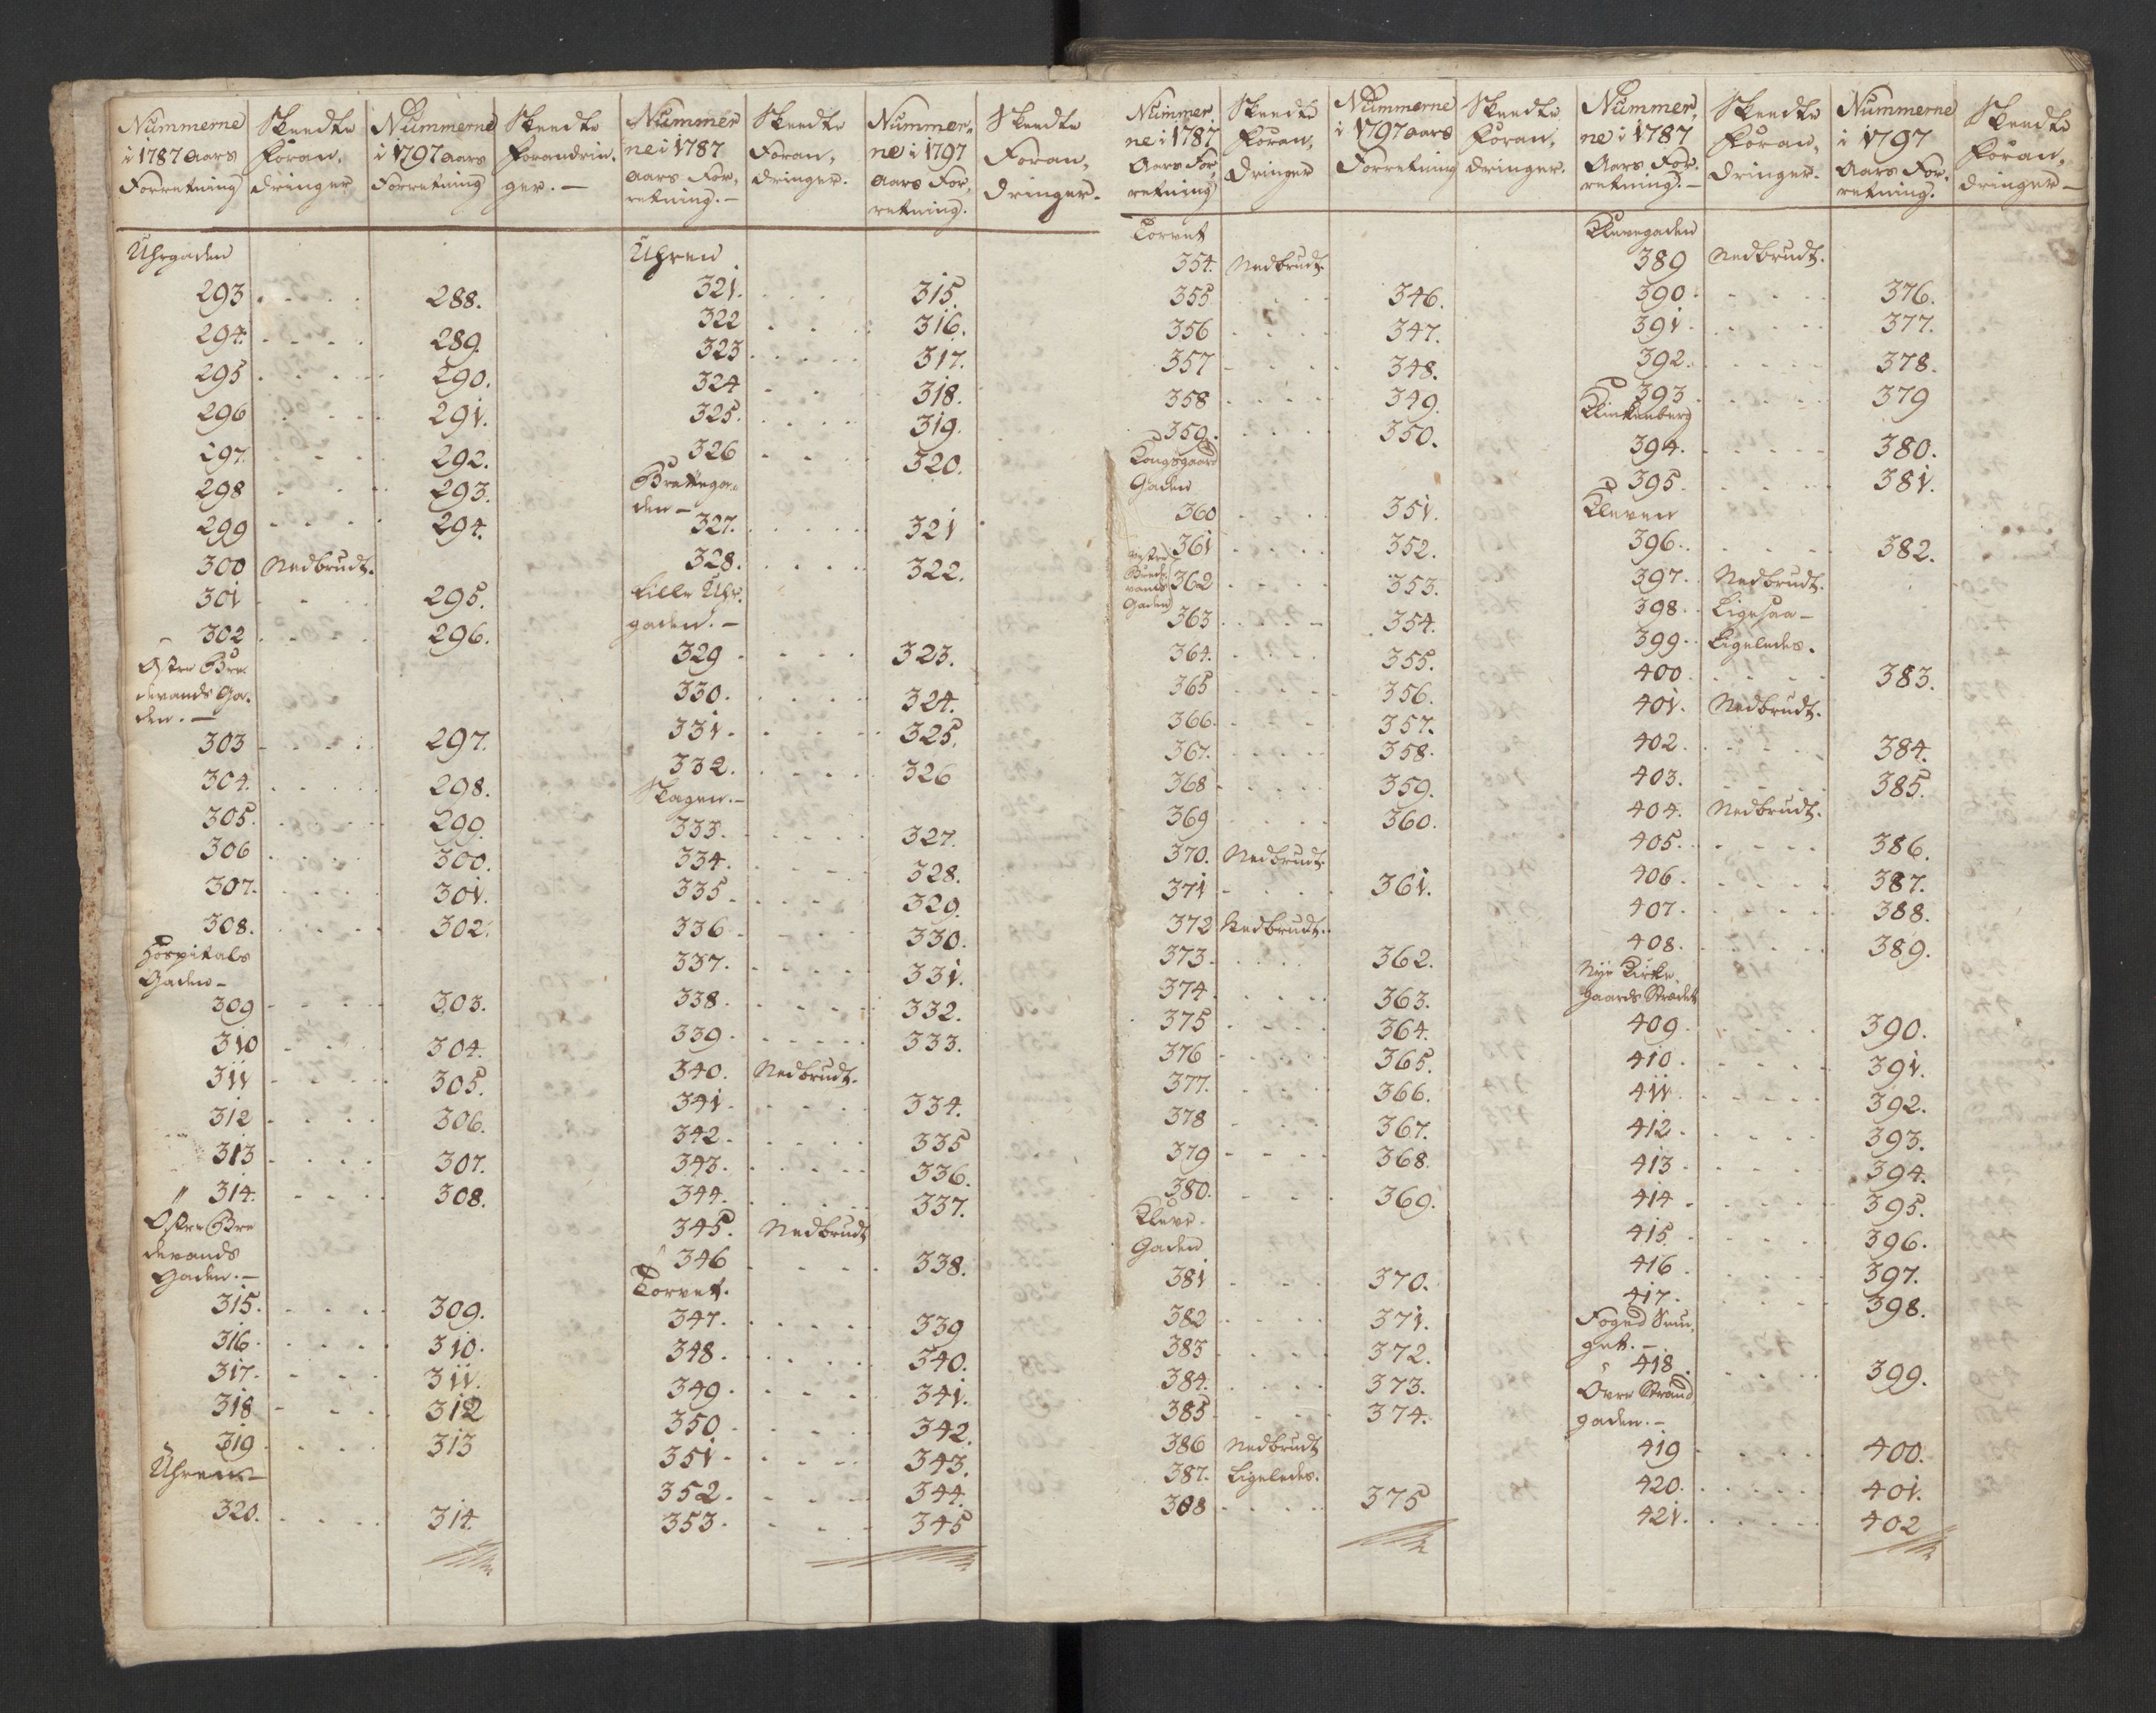 Nummerne i 1787 Aars Forretning | Skeedte Foran, dringer | Nummerne i 1797 Aars Forretning | Skeedte Forandrin, ger. —
Uhrgaden
293 . . . . 288.
294. . . . . 289.
295 . . . . . 290.
296 . . . . 291.
297. . . . . 292.
298 . . . . 293.
299 . . . . 294.
300 Nedbrudt.
301 . . . . 295.
302 . . . . 296.
Østre Bre
devands Ga,
den. —
303 . . . . 297.
304. . . . . 298.
305. . . . . 299.
306 . . . . 300.
307. . . . . 301.
308. . . . . 302.
Hospitals
Gaden —
309 . . . . 303.
310 . . . . 304.
311 . . . . 305.
312 . . . . 306.
313 . . . . 307.
" 314. . . . . 308.
Østre Bre
devands
Gaden. —
315. . . . . 309.
316. . . . . 310.
317. . . . . 311.
318 . . . . 312
319. . . . . 313
Uhren —
320. . . . . 314.
Nummer ne i 1787 Aars For, retning. — | Skeedte Foran, dringer. | Nummer, ne i 1797 Aars For, retning. | Skeedte Foran, dringer.
Uhren
321. . . . 315.
322 . . . . 316.
323 . . . . . 317.
324 . . . 318.
325. . . . . 319.
326 . . . . 320.
Brattega,
den —
327. . . . . 321
328. . . . . 322.
Lille Uhr,
gaden. —
329 . . . . 323.
330. . . . . 324.
331. . . . . 325.
332. . . . . 326
Skagen. —
333. . . . . 327.
334. . . . . 328.
335 . . . . 329.
336 . . . . 330.
337. . . . . 331.
338. . . . . 332.
339. . . . . 333.
340. Nedbrudt.
341. . . . . 334.
342. . . . . 335
343. . . . . 336.
344. . . . . 337.
345. Nedbrudt
346 . . . . 338.
Torvet.
347. . . . . 339
348. . . . . 340.
349. . . . . 341.
350 . . . . 342.
351. . . . . 343.
352. . . . . 344.
353. . . . . 345
Nummer, ne i 1787 Aars For, retning | Skeedte Foran, dringer | Nummerne i 1797 Aars Forretning | Skeedte Foran, dringer.
Torvet
354. Nedbrudt.
355 . . . 346.
356 . . . . 347.
357 . . . . 348.
358 . . . . 349.
359. . . . . 350.
Kongsgaard
Gaden
360 . . . . 351.
361 . . . . 352.
Vestre
Brede,
vands
Gaden
362 . . . . 353.
363 . . . . 354.
364. . . . 355.
365 . . . . 356.
366. . . . 357.
367. . . . . 358.
368 . . . . 359.
369 . . . . 360.
370. Nedbrudt.
371 . . . . 361.
372 Nedbrudt.
373. . . . . 362.
374. . . . . 363.
375 . . . . 364.
376 . . . . 365.
377. . . . . 366.
378 . . . . 367.
379 . . . . 368.
380. . . . . 369.
Kleve.
Gaden
381 . . . . 370.
382 . . . . 371.
383 . . . . 372.
384. . . . . 373.
385 . . . . 374.
386 Nedbrudt
387. Ligeledes.
388 . . . . 375
Nummer, ne i 1787 Aars For, retning. — | Skeedte Foran, dringer. | Nummerne i 1797 Aars For, retning. | Skeedte Foran, dringer —
Klevegaden
389 Nedbrudt.
390. . . . . 376.
391. . . . . 377.
392. . . . . 378.
393 . . . . 379
Klinkenberg
394. . . . . 380.
395. . . . . 381.
Kleven
396. . . . . 382.
397. Nedbrudt.
398. Ligesaa —
399. Ligeledes.
400 . . . . 383.
401. Nedbrudt.
402. . . . . 384.
403. . . . . 385.
404. Nedbrudt.
405. . . . . 386.
406. . . . . 387.
407. . . . . 388.
408. . . . . 389.
Nye Kirke,
gaards Strædet
409. . . . . 390.
410. . . . . 391.
411. . . . . 392.
412. . . . . 393.
413. . . . . 394.
414. . . . . 395.
415. . . . . 396.
416. . . . . 397.
417. . . . . 398.
Foged Smu,
get. —
418. . . . . 399.
Øvre Strand,
gaden. —
419 . . . . 400.
420. . . . . 401.
421. . . . . 402